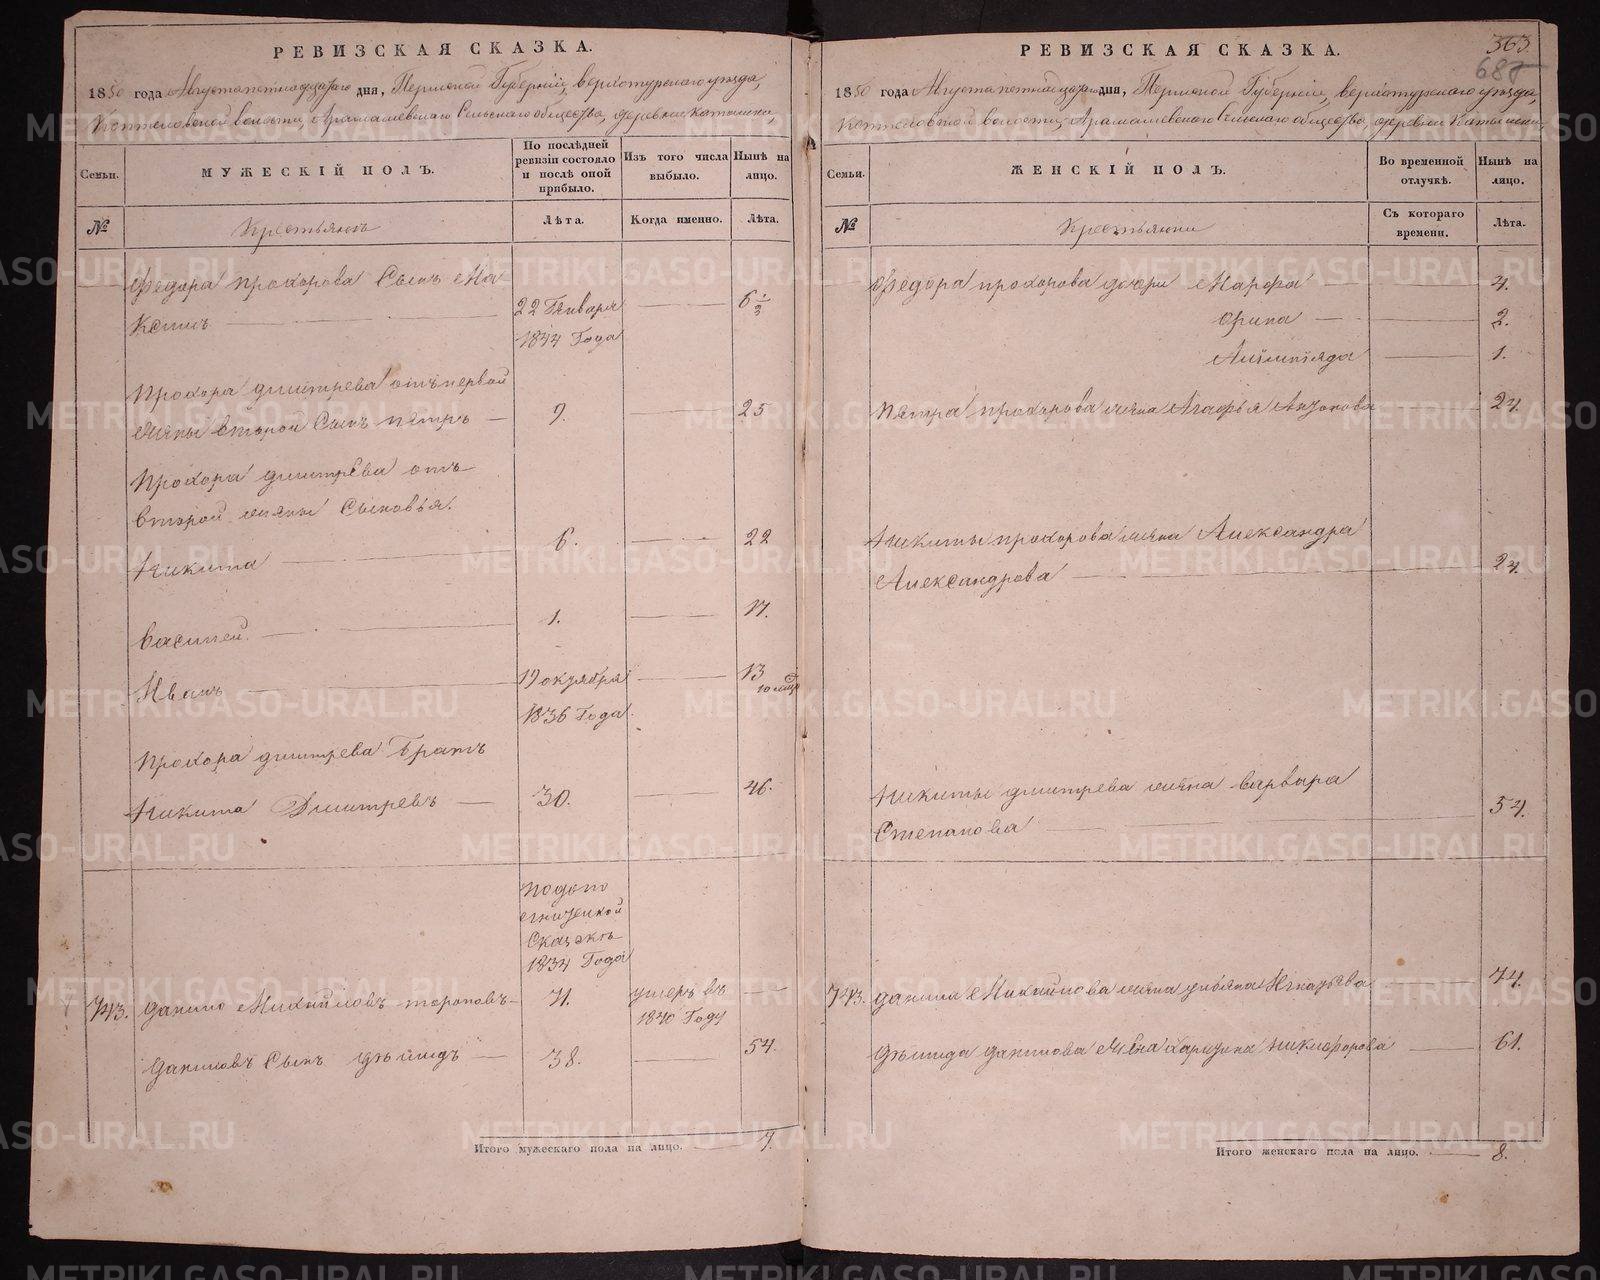 РЕВИЗСКАЯ СКАЗКА.
1850 года Августа пятнадцатаго дня, Пермской Губерніи, верхотурскаго уезда,
волости, Арамашевскаго Сельскаго общества, деревни
Семьи.
МУЖЕСКІЙ ПОЛЪ.
По послѣдней ревизіи состояло и послѣ оной прибыло.
Изъ того числа выбыло.
Нынѣ на лицо.
№
Крестьянъ
Лѣта.
Когда именно.
Лѣта.
Федора прохорова Сынъ Ма-
ксимъ
22 Генваря
1844 Года
6 1/2
Прохора дмитрева отъ первой
жены второй Сынъ петръ
9.
25
Прохора дмитрева отъ
второй жены Сыновья.
Никита
6.
22
василей.
1.
17.
Иванъ
19 октября
1836 Года.
13
10 мѣс
Прохора дмитрева Братъ
Никита Дмитревъ
30.
46.
1834 Года
743. данило Михайловъ тороповъ
71.
умеръ въ
1840 Году
даниловъ Сынъ
38.
54.
Итого мужескаго пола на лицо. 7.
363
687
РЕВИЗСКАЯ СКАЗКА.
1850 года Августа пятнадцатаго дня, Пермской Губерніи, верхотурскаго уезда,
волости, Арамашевскаго Сельскаго общества, деревни
Семьи.
ЖЕНСКІЙ ПОЛЪ.
Во временной отлучкѣ.
Нынѣ на лицо.
№
Съ котораго времени.
Лѣта.
Федора прохорова дочери Марфа
4.
Орина
2.
1.
Петра прохорова жена Агафья
24.
Никиты прохорова жена Александра
Александрова
24.
Никиты дмитрева жена варвара
Степанова
54.
743. данила Михайлова жена ульяна Игнатьева
74.
данилова жена Никифорова
61.
Итого женскаго пола на лицо. 8.
METRIKI.GASO-URAL.RU